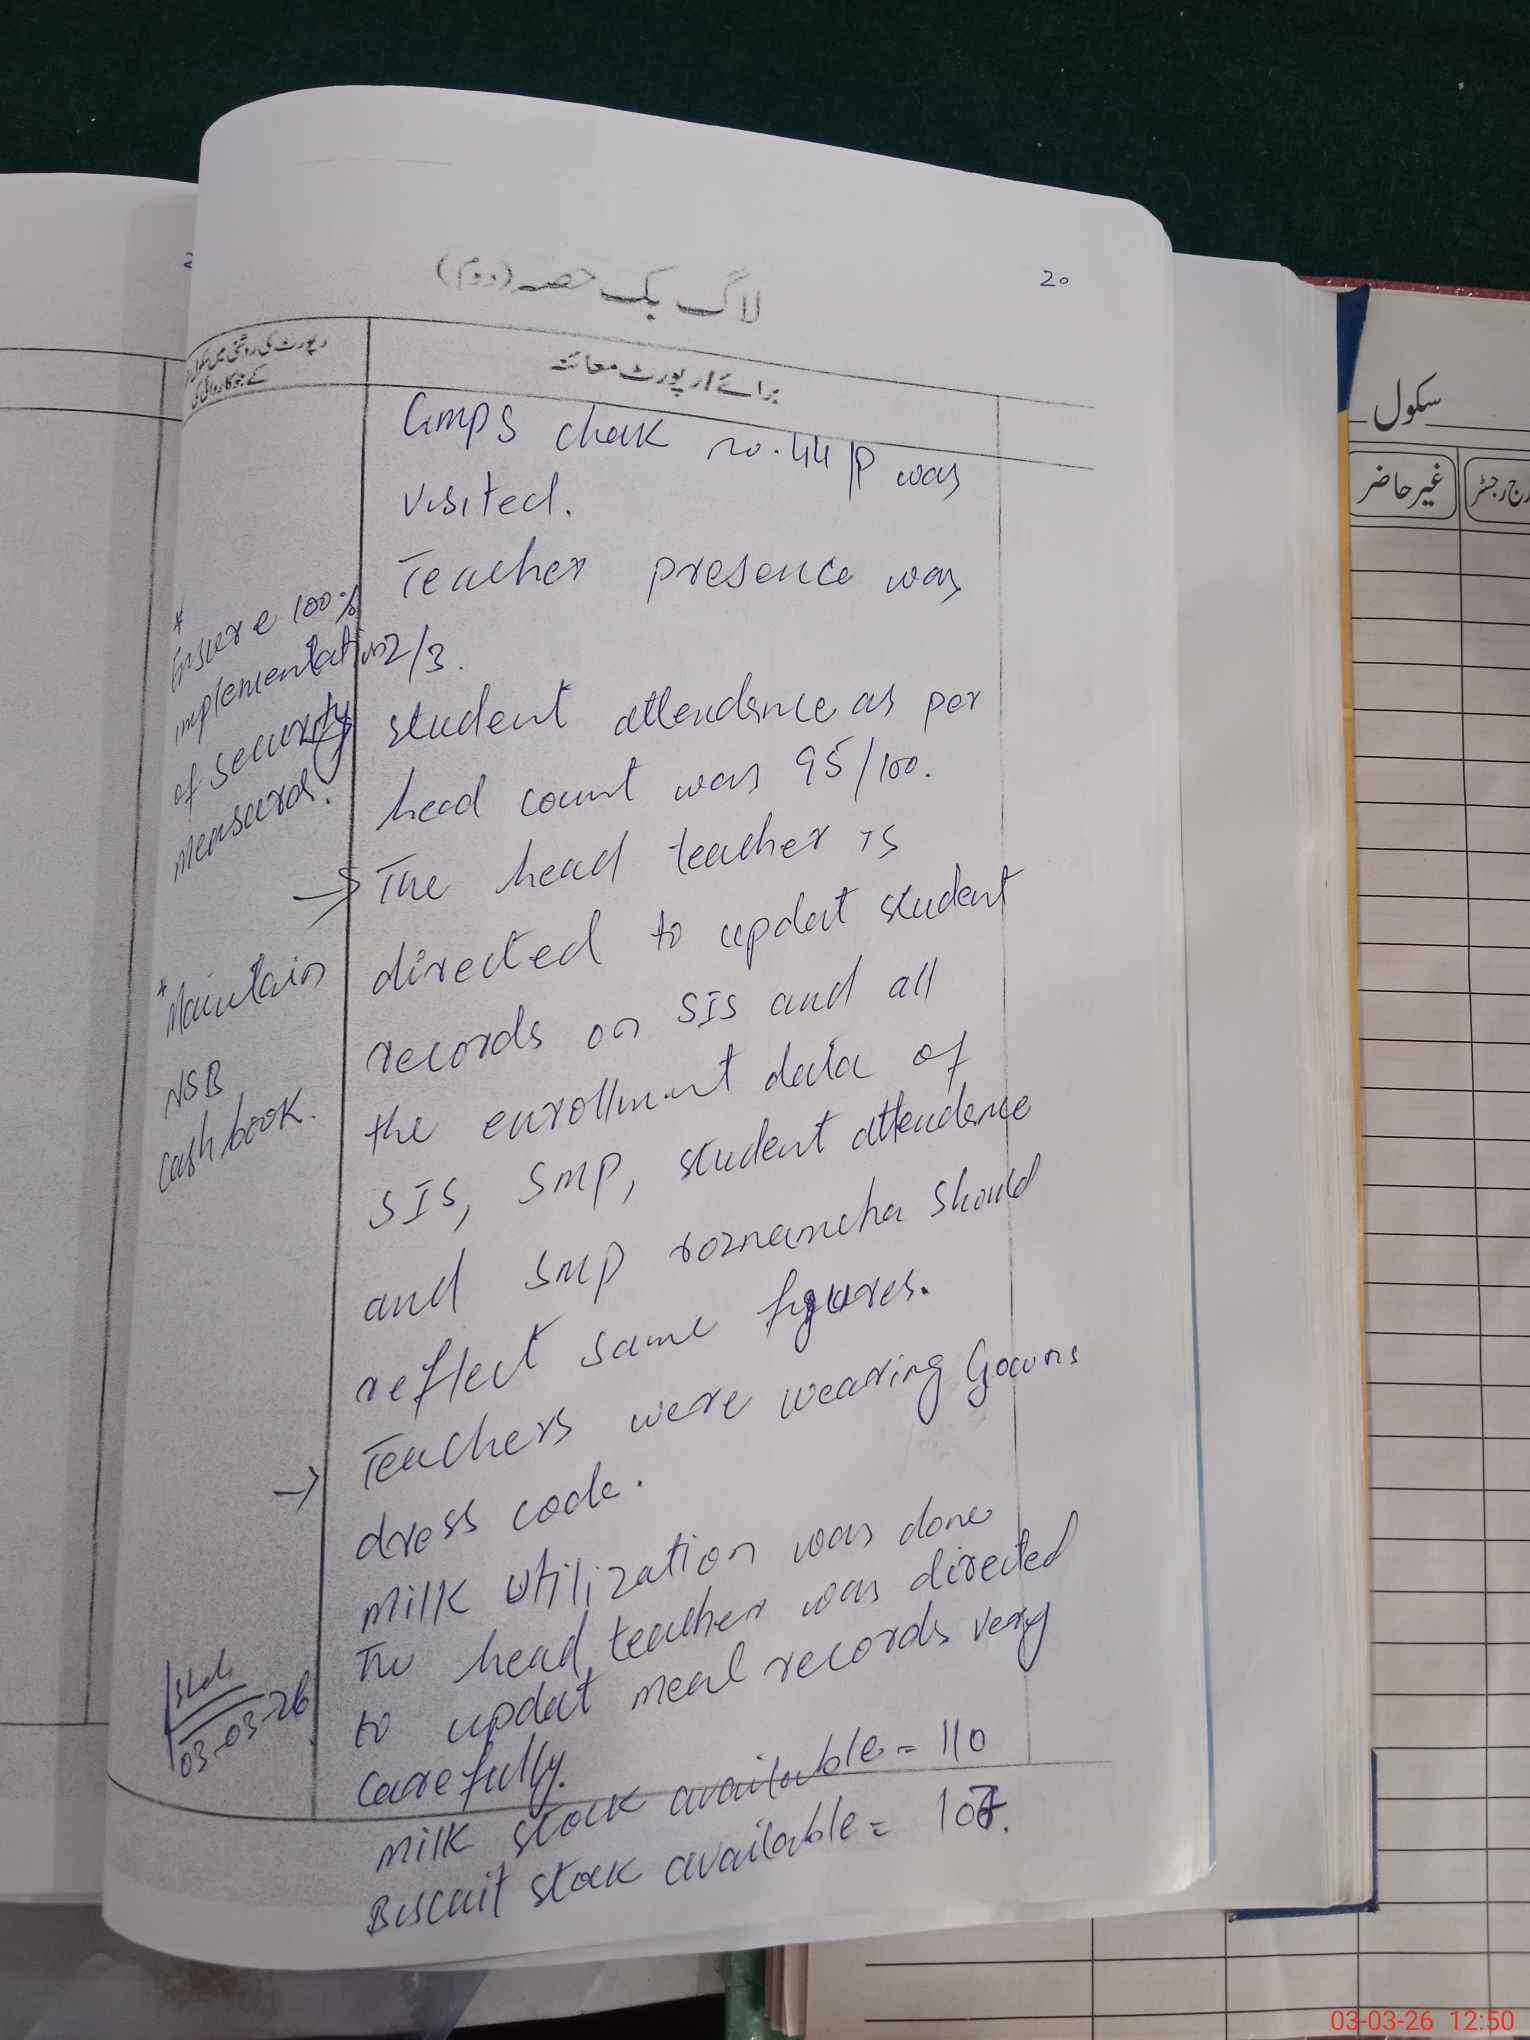 20
لاگ بک حصہ (دوم)
رپورٹ کی روشنی میں سکول
کے جو کاروائی کی
برائے رپورٹ معائنہ
GMPS chak no. 44/P was
visited.
Teacher presence was
2/3.
student attendance as per
head count was 95/100.
→ The head teacher is
directed to updat student
records on SIS and all
the enrollment data of
SIS, SMP, student attendance
and SMP roznamcha should
reflect same figures.
→ Teachers were wearing Gowns
dress code.
Milk utilization was done
The head teacher was directed
to updat meal records very
carefully.
Milk stock available = 110
Biscuit stock available = 107.
*
Ensure 100%
implementation
of security
measures.
* Maintain
NSB
cash book.
03-03-26
سکول
غیر حاضر
درج رجسٹر
03-03-26 12:50